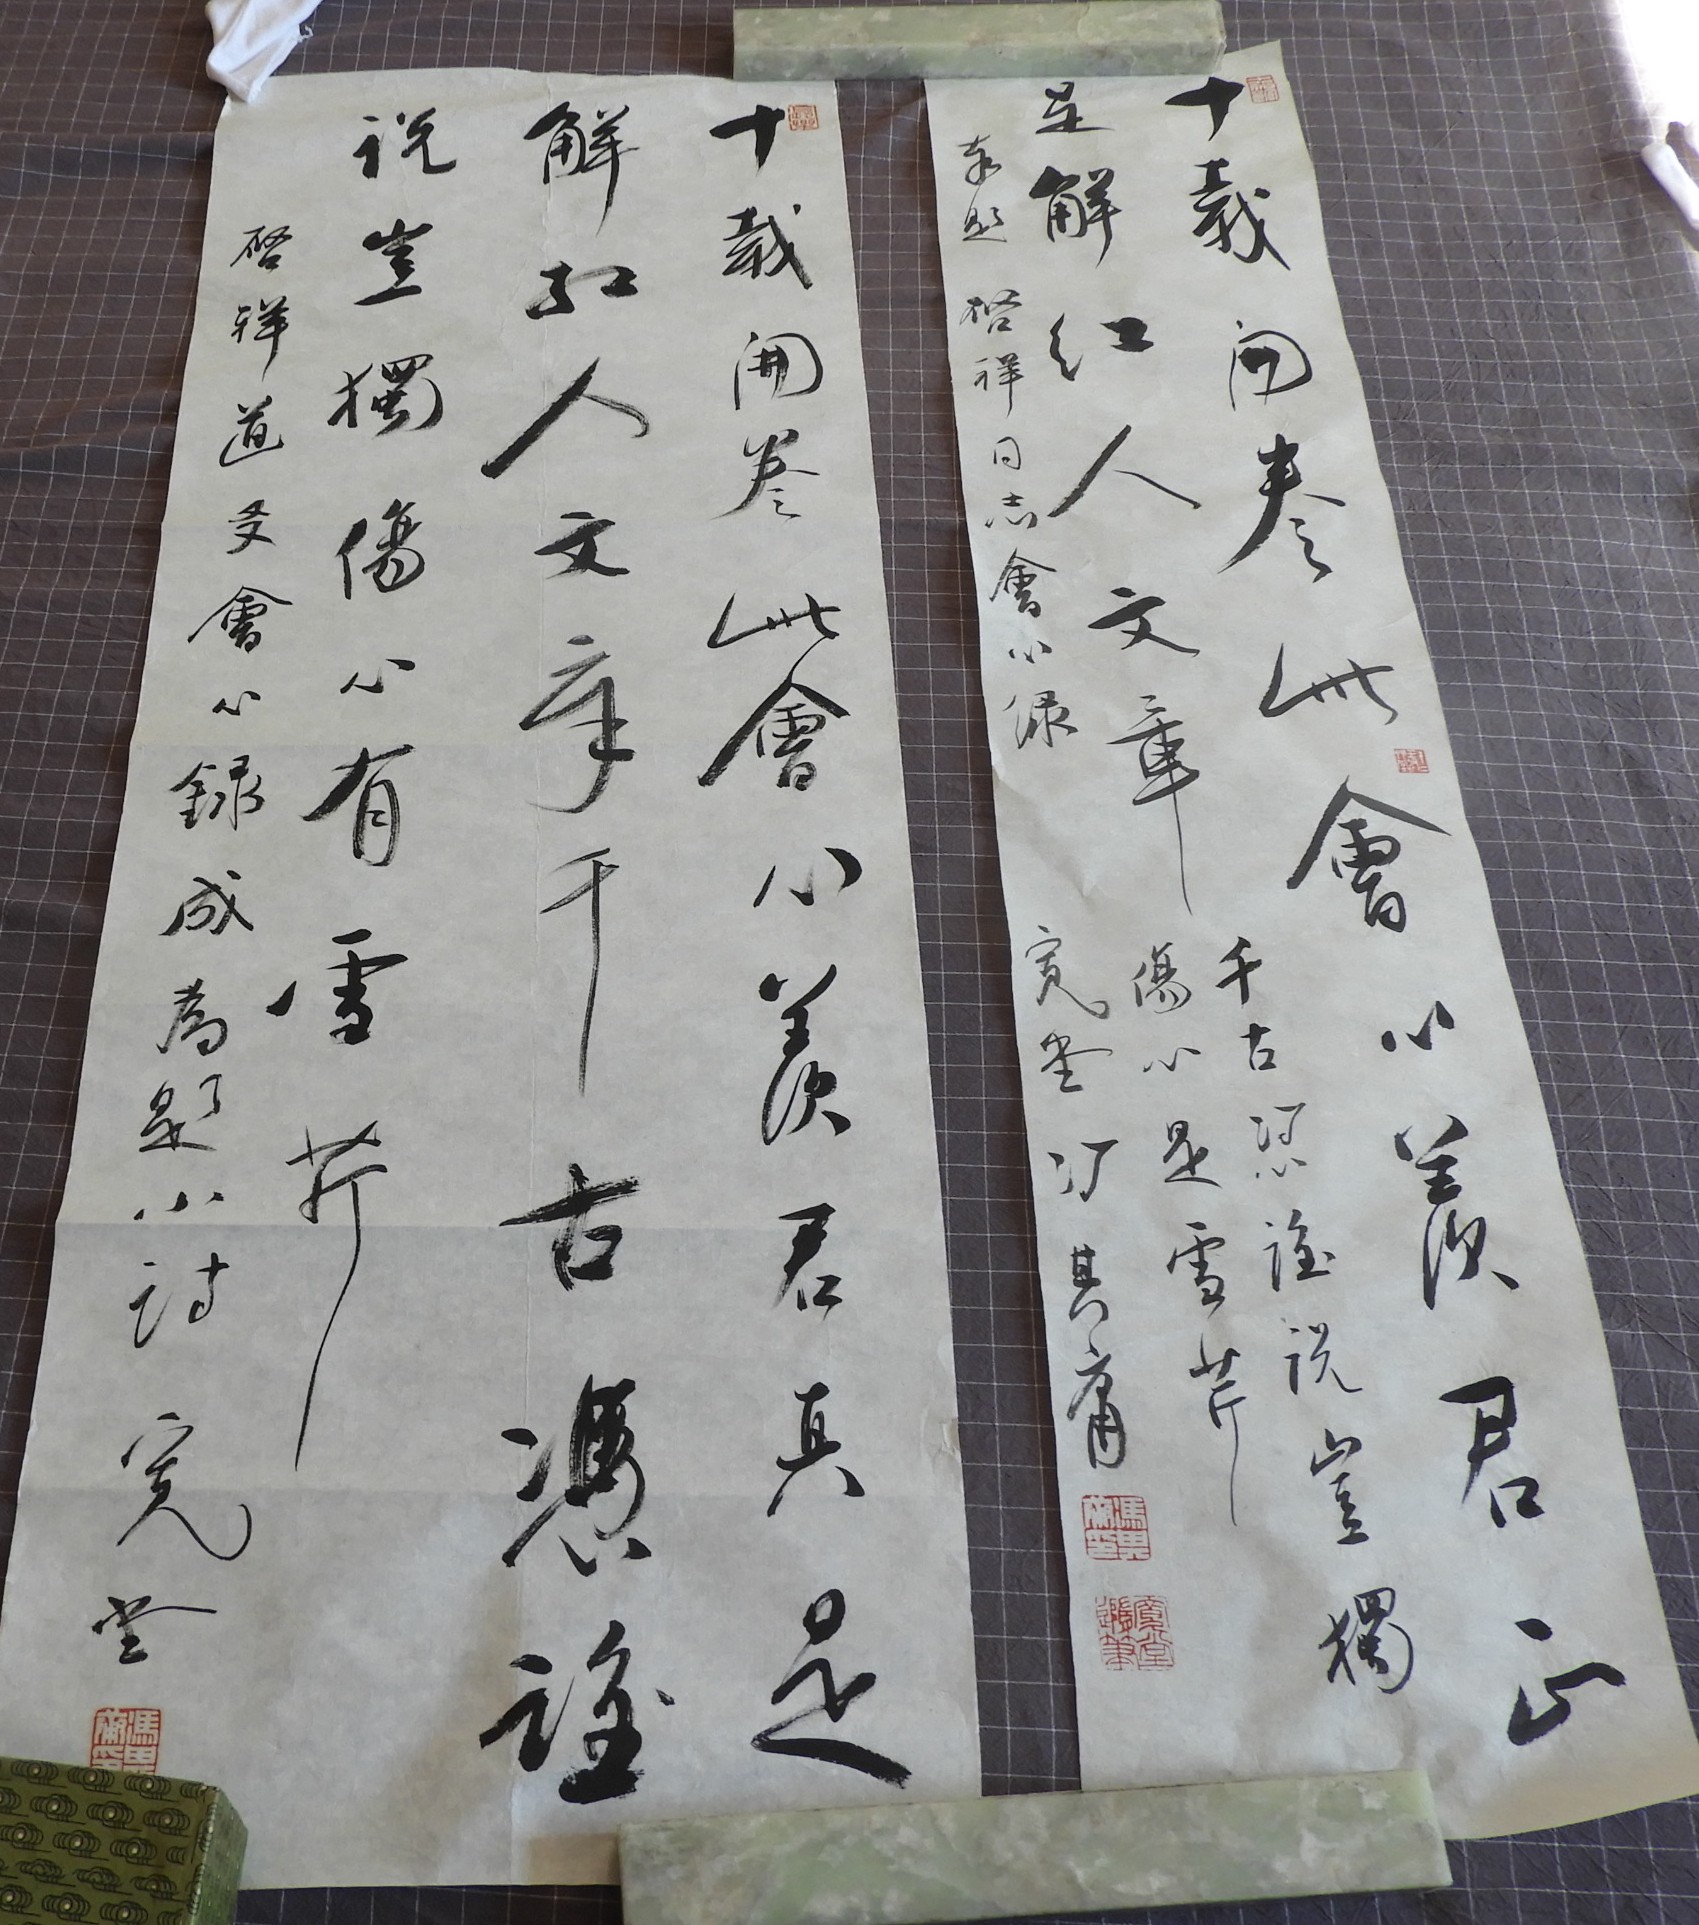 十載開卷此會心羨君正
是解紅人文章
千古憑誰說豈獨
傷心是雪芹
奉題 啓祥同志會心錄
寬堂馮其庸
馮其庸印
十載開卷此會心羨君真是
解紅人文章千古憑誰
說豈獨傷心有雪芹
啓祥道友會心錄成為題小詩 寬堂